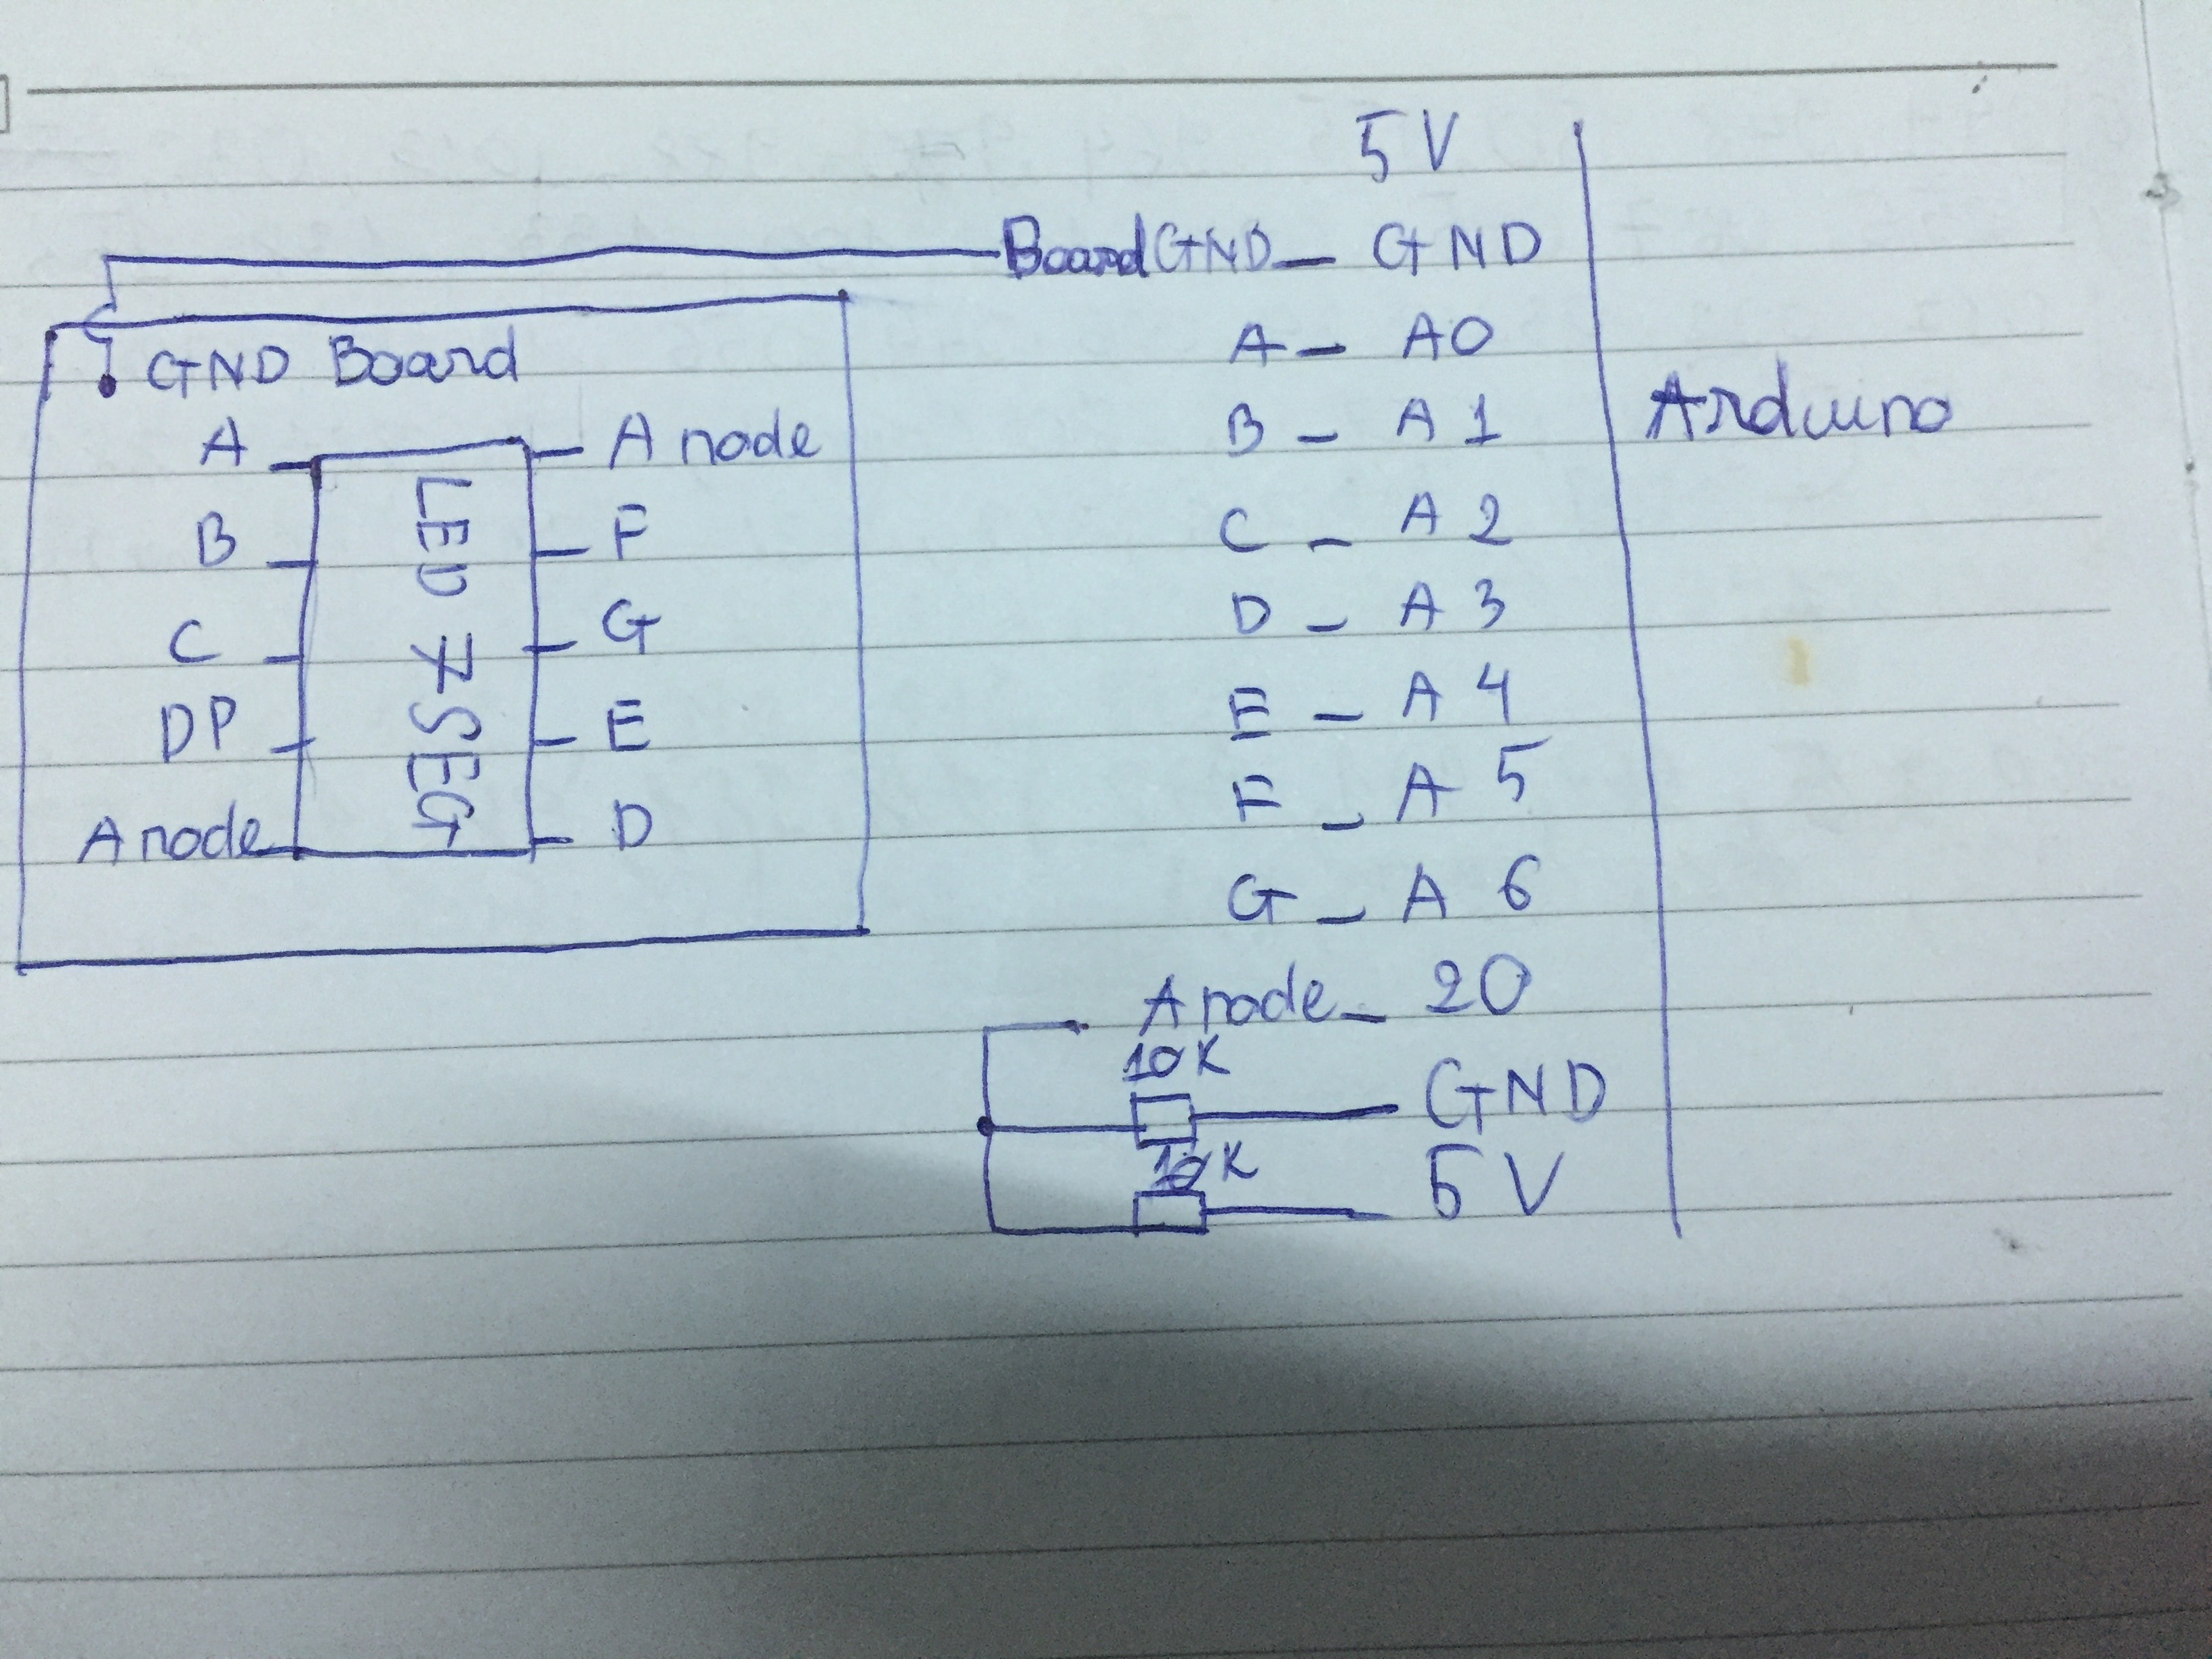 5V
Board GND - GND
GND Board
A - A0
A Anode
B - A1
Arduino
B F
C - A2
C G
D - A3
DP E
E - A4
Anode D
F - A5
LED 7SEG
G - A6
Anode - 20
10K
GND
10K
5V